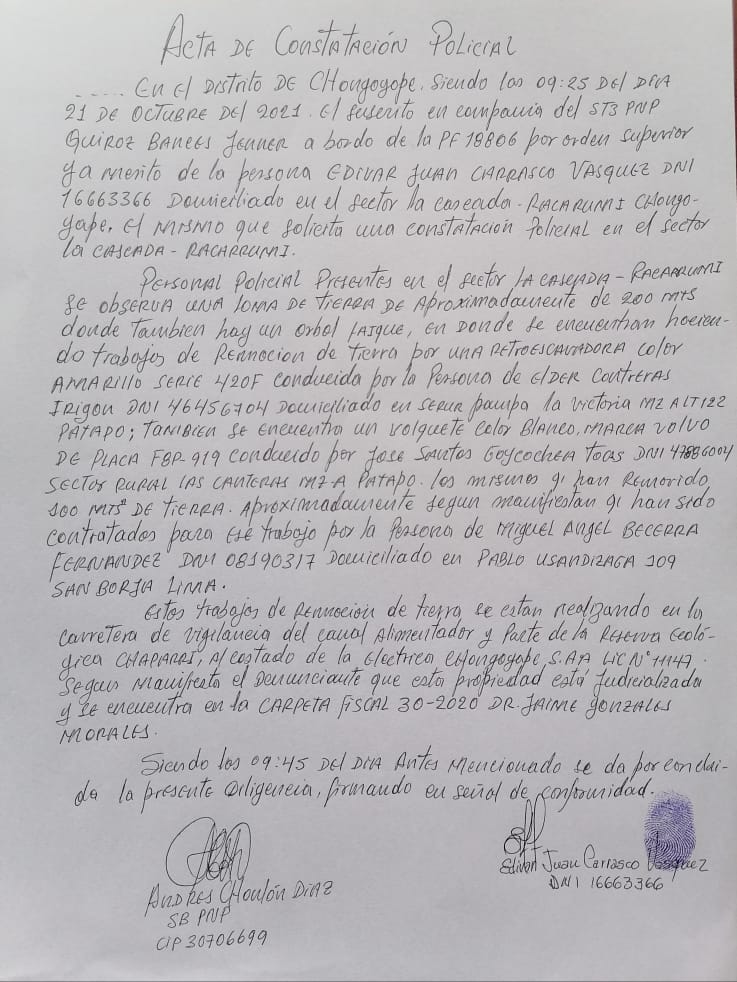 ACTA DE CONSTATACIÓN POLICIAL
..... EN El DISTRITO DE CHONGOYOPE, Siendo las 09:25 DEL DIA
21 DE OCTUBRE DEL 2021. El suscrito en compañia del ST3 PNP
QUIROZ BANCES JENNER a bordo de la PF 18806 por orden superior
y a merito de la persona EDIVAR JUAN CARRASCO VASQUEZ DNI
16663366 Domiciliado en el sector la cascada - RACARUMI CHONGO-
yape. El mismo que solicita una constatación Policial en el sector
LA CASCADA - RACARRUMI.
Personal Policial Presentes en el sector LA CASCADA - RACARRUMI
se OBSERVA UNA LOMA DE TIERRA DE Aproximadamente de 200 mts
donde Tambien hay un arbol FAIQUE, en donde se encuentran hacien-
do trabajos de Remocion de tierra por una RETROESCAVADORA color
AMARILLO SERIE 420F conducida por la Persona de ELDER CONTRERAS
IRIGOIN DNI 46456704 Domiciliado en pampa la victoria MZ A LT 122
PATAPO; TAMBIEN se encuentra un volquete color Blanco, MARCA VOLVO
DE PLACA F8P-919 conducido por JOSE SANTOS GOYCOCHEA TOCAS DNI 47886004
SECTOR RURAL LAS CANTERAS MZ-A PATAPO. los mismos q' han Removido
100 MTS DE TIERRA. Aproximadamente segun manifiestan q' han sido
contratados para Ese trabajo por la Persona de Miguel Angel BECERRA
FERNANDEZ DNI 08190317 Domiciliado en PABLO USANDIZAGA 109
SAN BORJA LIMA.
Estos trabajos de Remocion de tierra se estan realizando en la
carretera de vigilancia del canal Alimentador y Parte de la Reserva Ecoló-
gica CHAPARRI, Al costado de la Electrica Chongoyape, S.A.A LIC N° 11147.
Segun Manifiesta el Denunciante que esta propiedad está Judicializada
y se encuentra en la CARPETA FISCAL 30-2020 DR. JAIME GONZALES
MORALES.
Siendo las 09:45 DEL DIA Antes Mencionado se da por conclui-
da la presente Diligencia, firmando en señal de conformidad.
ANDRES CHOLÓN DIAZ
SB PNP
CIP 30706699
Edivar Juan Carrasco Vasquez
DNI 16663366